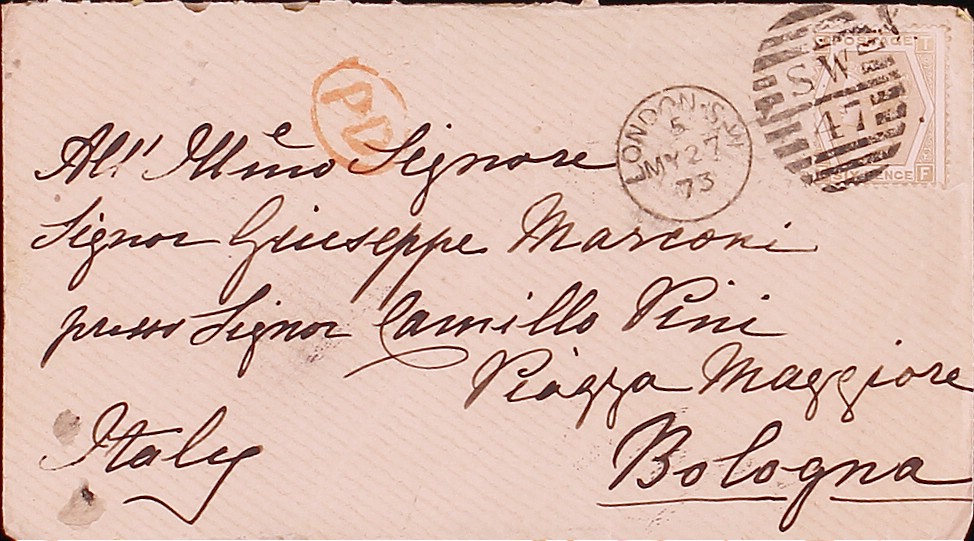 POSTAGE
T
SW
47
SIX PENCE
F
PD
LONDON·S.W
5
MY 27
73
All' Ill͞mo Signore
Signor Giuseppe Marconi
presso Signor Camillo Pini
Piazza Maggiore
Bologna
Italy